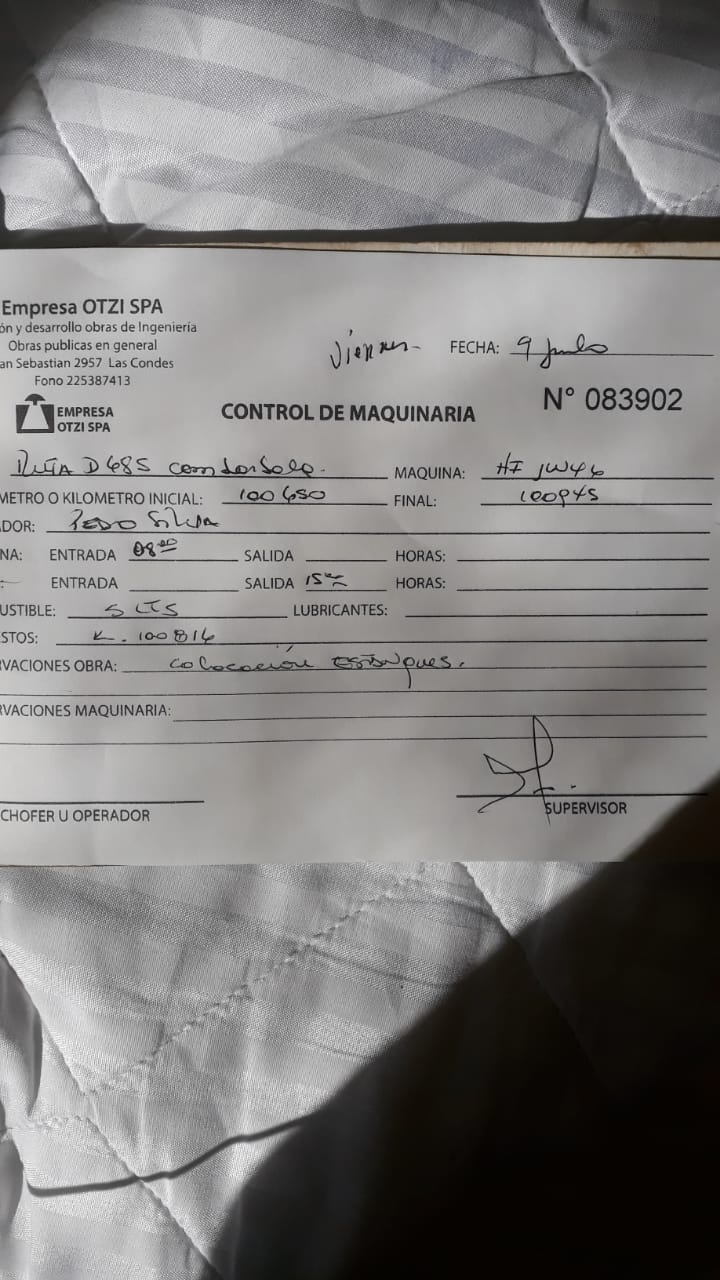 Empresa OTZI SPA
ón y desarrollo obras de Ingenieria
Obras publicas en general
an Sebastian 2957 Las Condes
Fono 225387413
Viernes- FECHA: 9 Junio
EMPRESA
OTZI SPA
CONTROL DE MAQUINARIA
N° 083902
Ruta D485 MAQUINA:
METRO O KILOMETRO INICIAL: 100650 FINAL: 100945
ADOR: Pedro Silva
NA: ENTRADA 08 00 SALIDA HORAS:
ENTRADA SALIDA 15 HORAS:
USTIBLE: LUBRICANTES:
STOS: K. 100814
RVACIONES OBRA: colocación estanques.
RVACIONES MAQUINARIA:
CHOFER U OPERADOR
SUPERVISOR